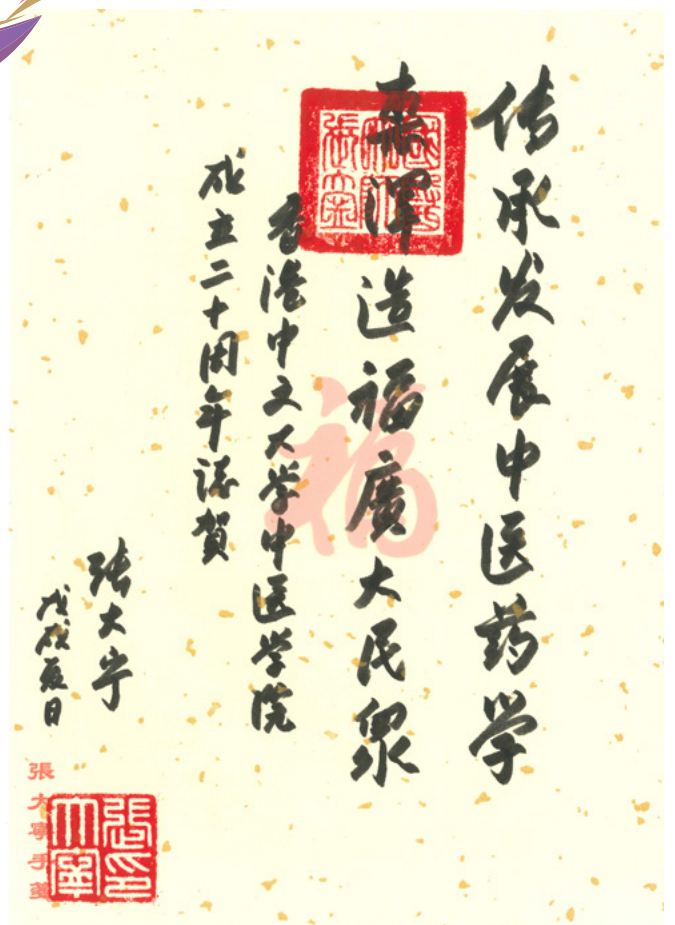 传承发展中医药学
惠澤造福廣大民眾
香港中文大学中医学院
成立二十周年誌賀
张大宁
戊戌夏日
張大寧手箋
張印大寧
福